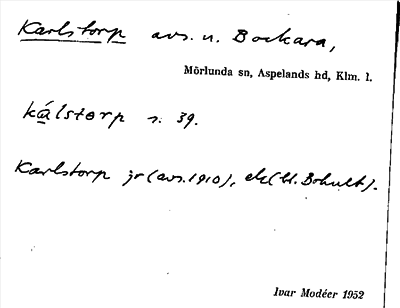 Karlstorp avs. u. Bockara,
Mörlunda sn, Aspelands hd, Klm. l.
kálstorp s. 39.
Karlstorp jr (avs. 1910), ek (kl. Bohult).
Ivar Modéer 1952